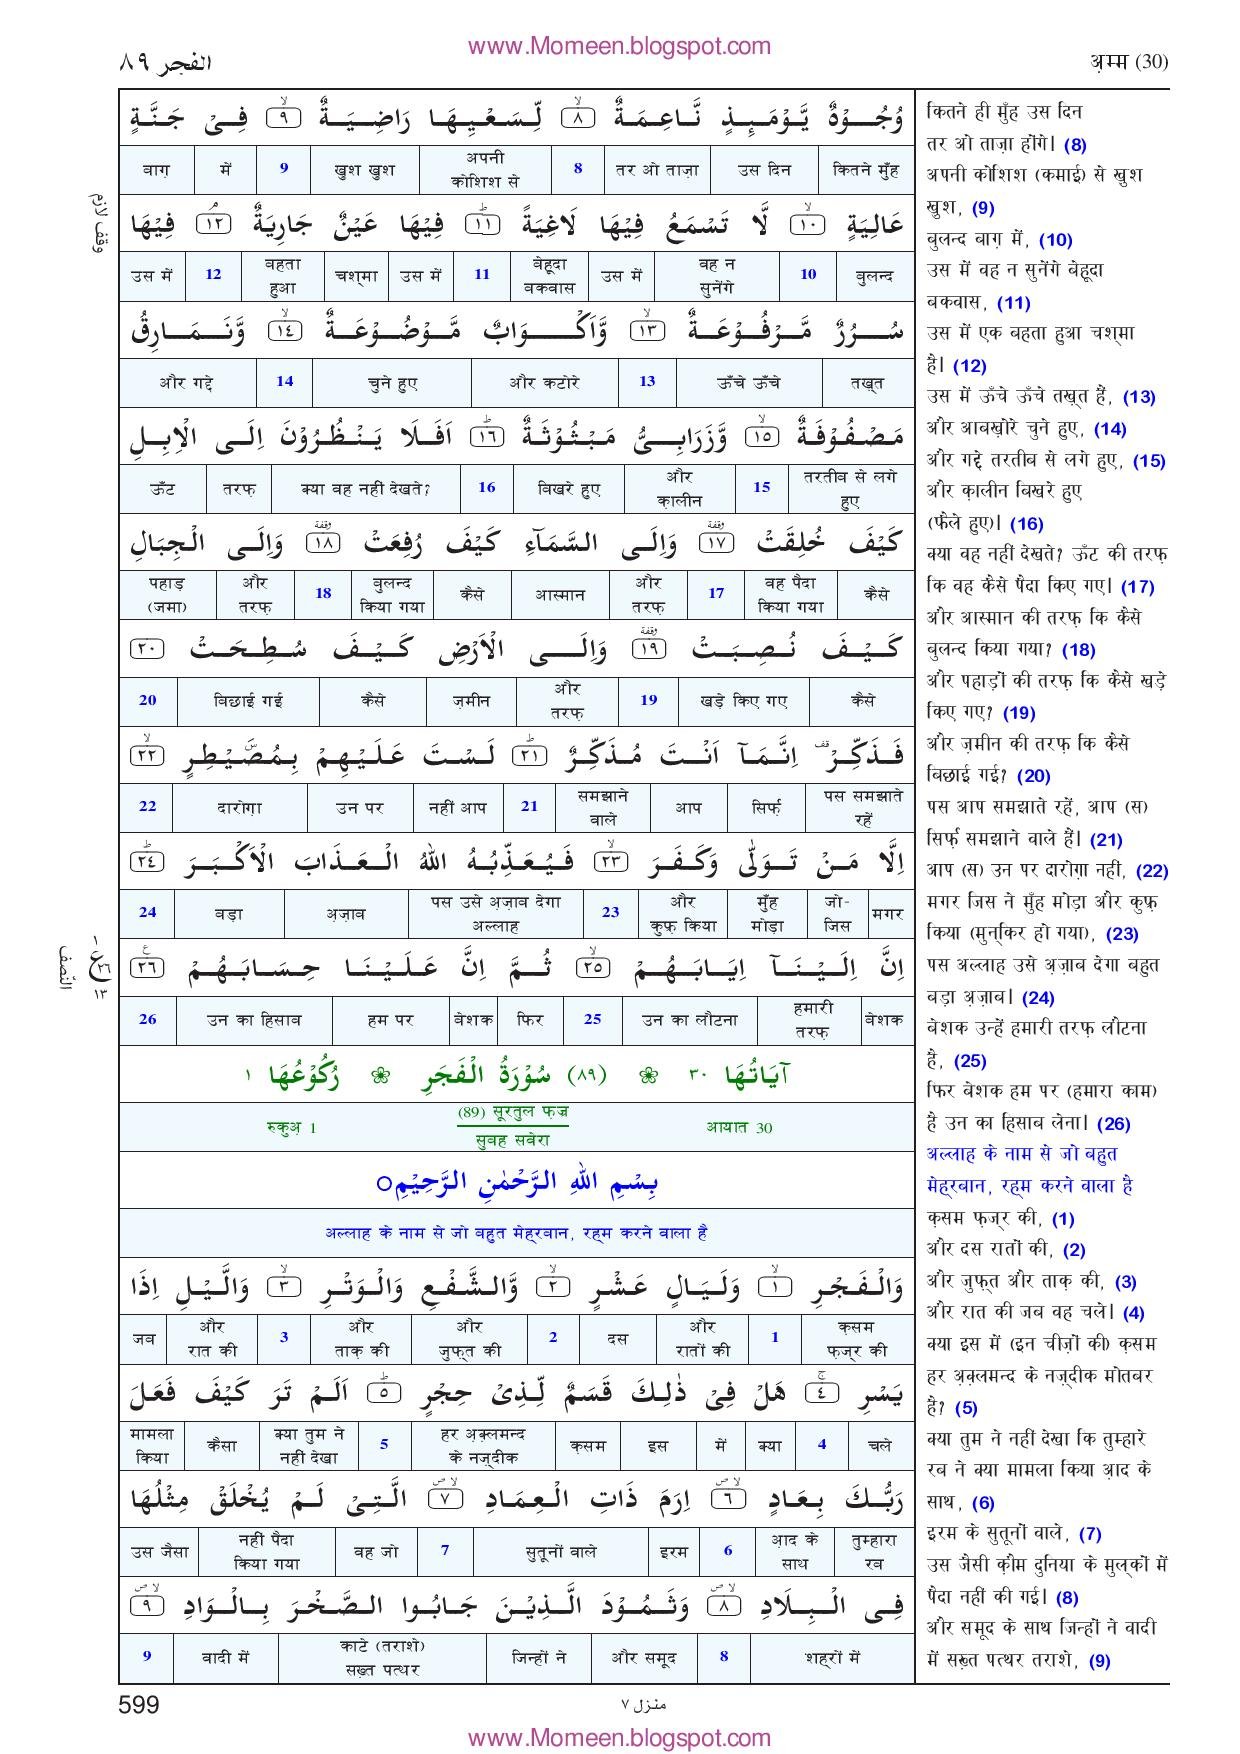 www.Momeen.blogspot.com
الفجر ٨٩
अ़म्म (30)
وُجُوْهٌ يَّوْمَئِذٍ نَّاعِمَةٌ ٨ لِّسَعْيِهَا رَاضِيَةٌ ٩ فِىْ جَنَّةٍ
कितने मुँह | उस दिन | तर ओ ताज़ा | 8 | अपनी कोशिश से | खुश खुश | 9 | में | बाग़
عَالِيَةٍ ١٠ لَّا تَسْمَعُ فِيْهَا لَاغِيَةً ١١ فِيْهَا عَيْنٌ جَارِيَةٌ ١٢ فِيْهَا
बुलन्द | 10 | वह न सुनेंगे | उस में | बेहूदा बकवास | 11 | उस में | चश्मा | बहता हुआ | 12 | उस में
سُرُرٌ مَّرْفُوْعَةٌ ١٣ وَّاَكْوَابٌ مَّوْضُوْعَةٌ ١٤ وَّنَمَارِقُ
तख़्त | ऊँचे ऊँचे | 13 | और कटोरे | चुने हुए | 14 | और गद्दे
مَصْفُوْفَةٌ ١٥ وَّزَرَابِىُّ مَبْثُوْثَةٌ ١٦ اَفَلَا يَنْظُرُوْنَ اِلَى الْاِبِلِ
तरतीब से लगे हुए | 15 | और क़ालीन | बिखरे हुए | 16 | क्या वह नहीं देखते? | तरफ़ | ऊँट
كَيْفَ خُلِقَتْ ١٧ وَاِلَى السَّمَآءِ كَيْفَ رُفِعَتْ ١٨ وَاِلَى الْجِبَالِ
कैसे | वह पैदा किया गया | 17 | और तरफ़ | आस्मान | कैसे | बुलन्द किया गया | 18 | और तरफ़ | पहाड़ (जमा)
كَيْفَ نُصِبَتْ ١٩ وَاِلَى الْاَرْضِ كَيْفَ سُطِحَتْ ٢٠
कैसे | खड़े किए गए | 19 | और तरफ़ | ज़मीन | कैसे | बिछाई गई | 20
فَذَكِّرْ اِنَّمَآ اَنْتَ مُذَكِّرٌ ٢١ لَسْتَ عَلَيْهِمْ بِمُصَۜيْطِرٍ ٢٢
पस समझाते रहें | सिर्फ़ | आप | समझाने वाले | 21 | नहीं आप | उन पर | दारोग़ा | 22
اِلَّا مَنْ تَوَلّٰى وَكَفَرَ ٢٣ فَيُعَذِّبُهُ اللّٰهُ الْعَذَابَ الْاَكْبَرَ ٢٤
मगर | जो-जिस | मुँह मोड़ा | और कुफ़्र किया | 23 | पस उसे अ़ज़ाब देगा अल्लाह | अ़ज़ाब | बड़ा | 24
اِنَّ اِلَيْنَآ اِيَابَهُمْ ٢٥ ثُمَّ اِنَّ عَلَيْنَا حِسَابَهُمْ ٢٦
बेशक | हमारी तरफ़ | उन का लौटना | 25 | फिर | बेशक | हम पर | उन का हिसाब | 26
آيَاتُهَا ٣٠ ❀ (٨٩) سُوْرَةُ الْفَجَرِ ❀ رُكُوْعُهَا ١
आयात 30 | (89) सूरतुल फ़ज्र सुबह सवेरा | रुकुअ़ 1
بِسْمِ اللّٰهِ الرَّحْمٰنِ الرَّحِيْمِ
अल्लाह के नाम से जो बहुत मेह्रबान, रह्म करने वाला है
وَالْفَجْرِ ١ وَلَيَالٍ عَشْرٍ ٢ وَّالشَّفْعِ وَالْوَتْرِ ٣ وَالَّيْلِ اِذَا
क़सम फ़ज्र की | 1 | और रातों की | दस | 2 | और जुफ़्त की | और ताक़ की | 3 | और रात की | जब
يَسْرِ ٤ هَلْ فِىْ ذٰلِكَ قَسَمٌ لِّذِىْ حِجْرٍ ٥ اَلَمْ تَرَ كَيْفَ فَعَلَ
चले | 4 | क्या | में | इस | क़सम | हर अ़क़्लमन्द के नज़्दीक | 5 | क्या तुम ने नहीं देखा | कैसा | मामला किया
رَبُّكَ بِعَادٍ ٦ اِرَمَ ذَاتِ الْعِمَادِ ٧ الَّتِىْ لَمْ يُخْلَقْ مِثْلُهَا
तुम्हारा रब | आ़द के साथ | 6 | इरम | सुतूनों वाले | 7 | वह जो | नहीं पैदा किया गया | उस जैसा
فِى الْبِلَادِ ٨ وَثَمُوْدَ الَّذِيْنَ جَابُوا الصَّخْرَ بِالْوَادِ ٩
शह्रों में | 8 | और समूद | जिन्हों ने | काटे (तराशे) सख़्त पत्थर | वादी में | 9
कितने ही मुँह उस दिन
तर ओ ताज़ा होंगे। (8)
अपनी कोशिश (कमाई) से खुश
खुश, (9)
बुलन्द बाग़ में, (10)
उस में वह न सुनेंगे बेहूदा
बकवास, (11)
उस में एक बहता हुआ चश्मा
है। (12)
उस में ऊँचे ऊँचे तख़्त हैं, (13)
और आबख़ोरे चुने हुए, (14)
और गद्दे तरतीब से लगे हुए, (15)
और क़ालीन बिखरे हुए
(फैले हुए)। (16)
क्या वह नहीं देखते? ऊँट की तरफ़
कि वह कैसे पैदा किए गए। (17)
और आस्मान की तरफ़ कि कैसे
बुलन्द किया गया? (18)
और पहाड़ों की तरफ़ कि कैसे खड़े
किए गए? (19)
और ज़मीन की तरफ़ कि कैसे
बिछाई गई? (20)
पस आप समझाते रहें, आप (स)
सिर्फ़ समझाने वाले हैं। (21)
आप (स) उन पर दारोग़ा नहीं, (22)
मगर जिस ने मुँह मोड़ा और कुफ़्र
किया (मुन्किर हो गया), (23)
पस अल्लाह उसे अ़ज़ाब देगा बहुत
बड़ा अ़ज़ाब। (24)
बेशक उन्हें हमारी तरफ़ लौटना
है, (25)
फिर बेशक हम पर (हमारा काम)
है उन का हिसाब लेना। (26)
अल्लाह के नाम से जो बहुत
मेह्रबान, रह्म करने वाला है
क़सम फ़ज्र की, (1)
और दस रातों की, (2)
और जुफ़्त और ताक़ की, (3)
और रात की जब वह चले। (4)
क्या इस में (इन चीज़ों की) क़सम
हर अ़क़्लमन्द के नज़्दीक मोतबर
है? (5)
क्या तुम ने नहीं देखा कि तुम्हारे
रब ने क्या मामला किया आ़द के
साथ, (6)
इरम के सुतूनों वाले, (7)
उस जैसी क़ौम दुनिया के मुल्कों में
पैदा नहीं की गई। (8)
और समूद के साथ जिन्हों ने वादी
में सख़्त पत्थर तराशे, (9)
وقف لازم
النّصف
ع ١ ٢٦ ١٣
599
منزل ٧
www.Momeen.blogspot.com